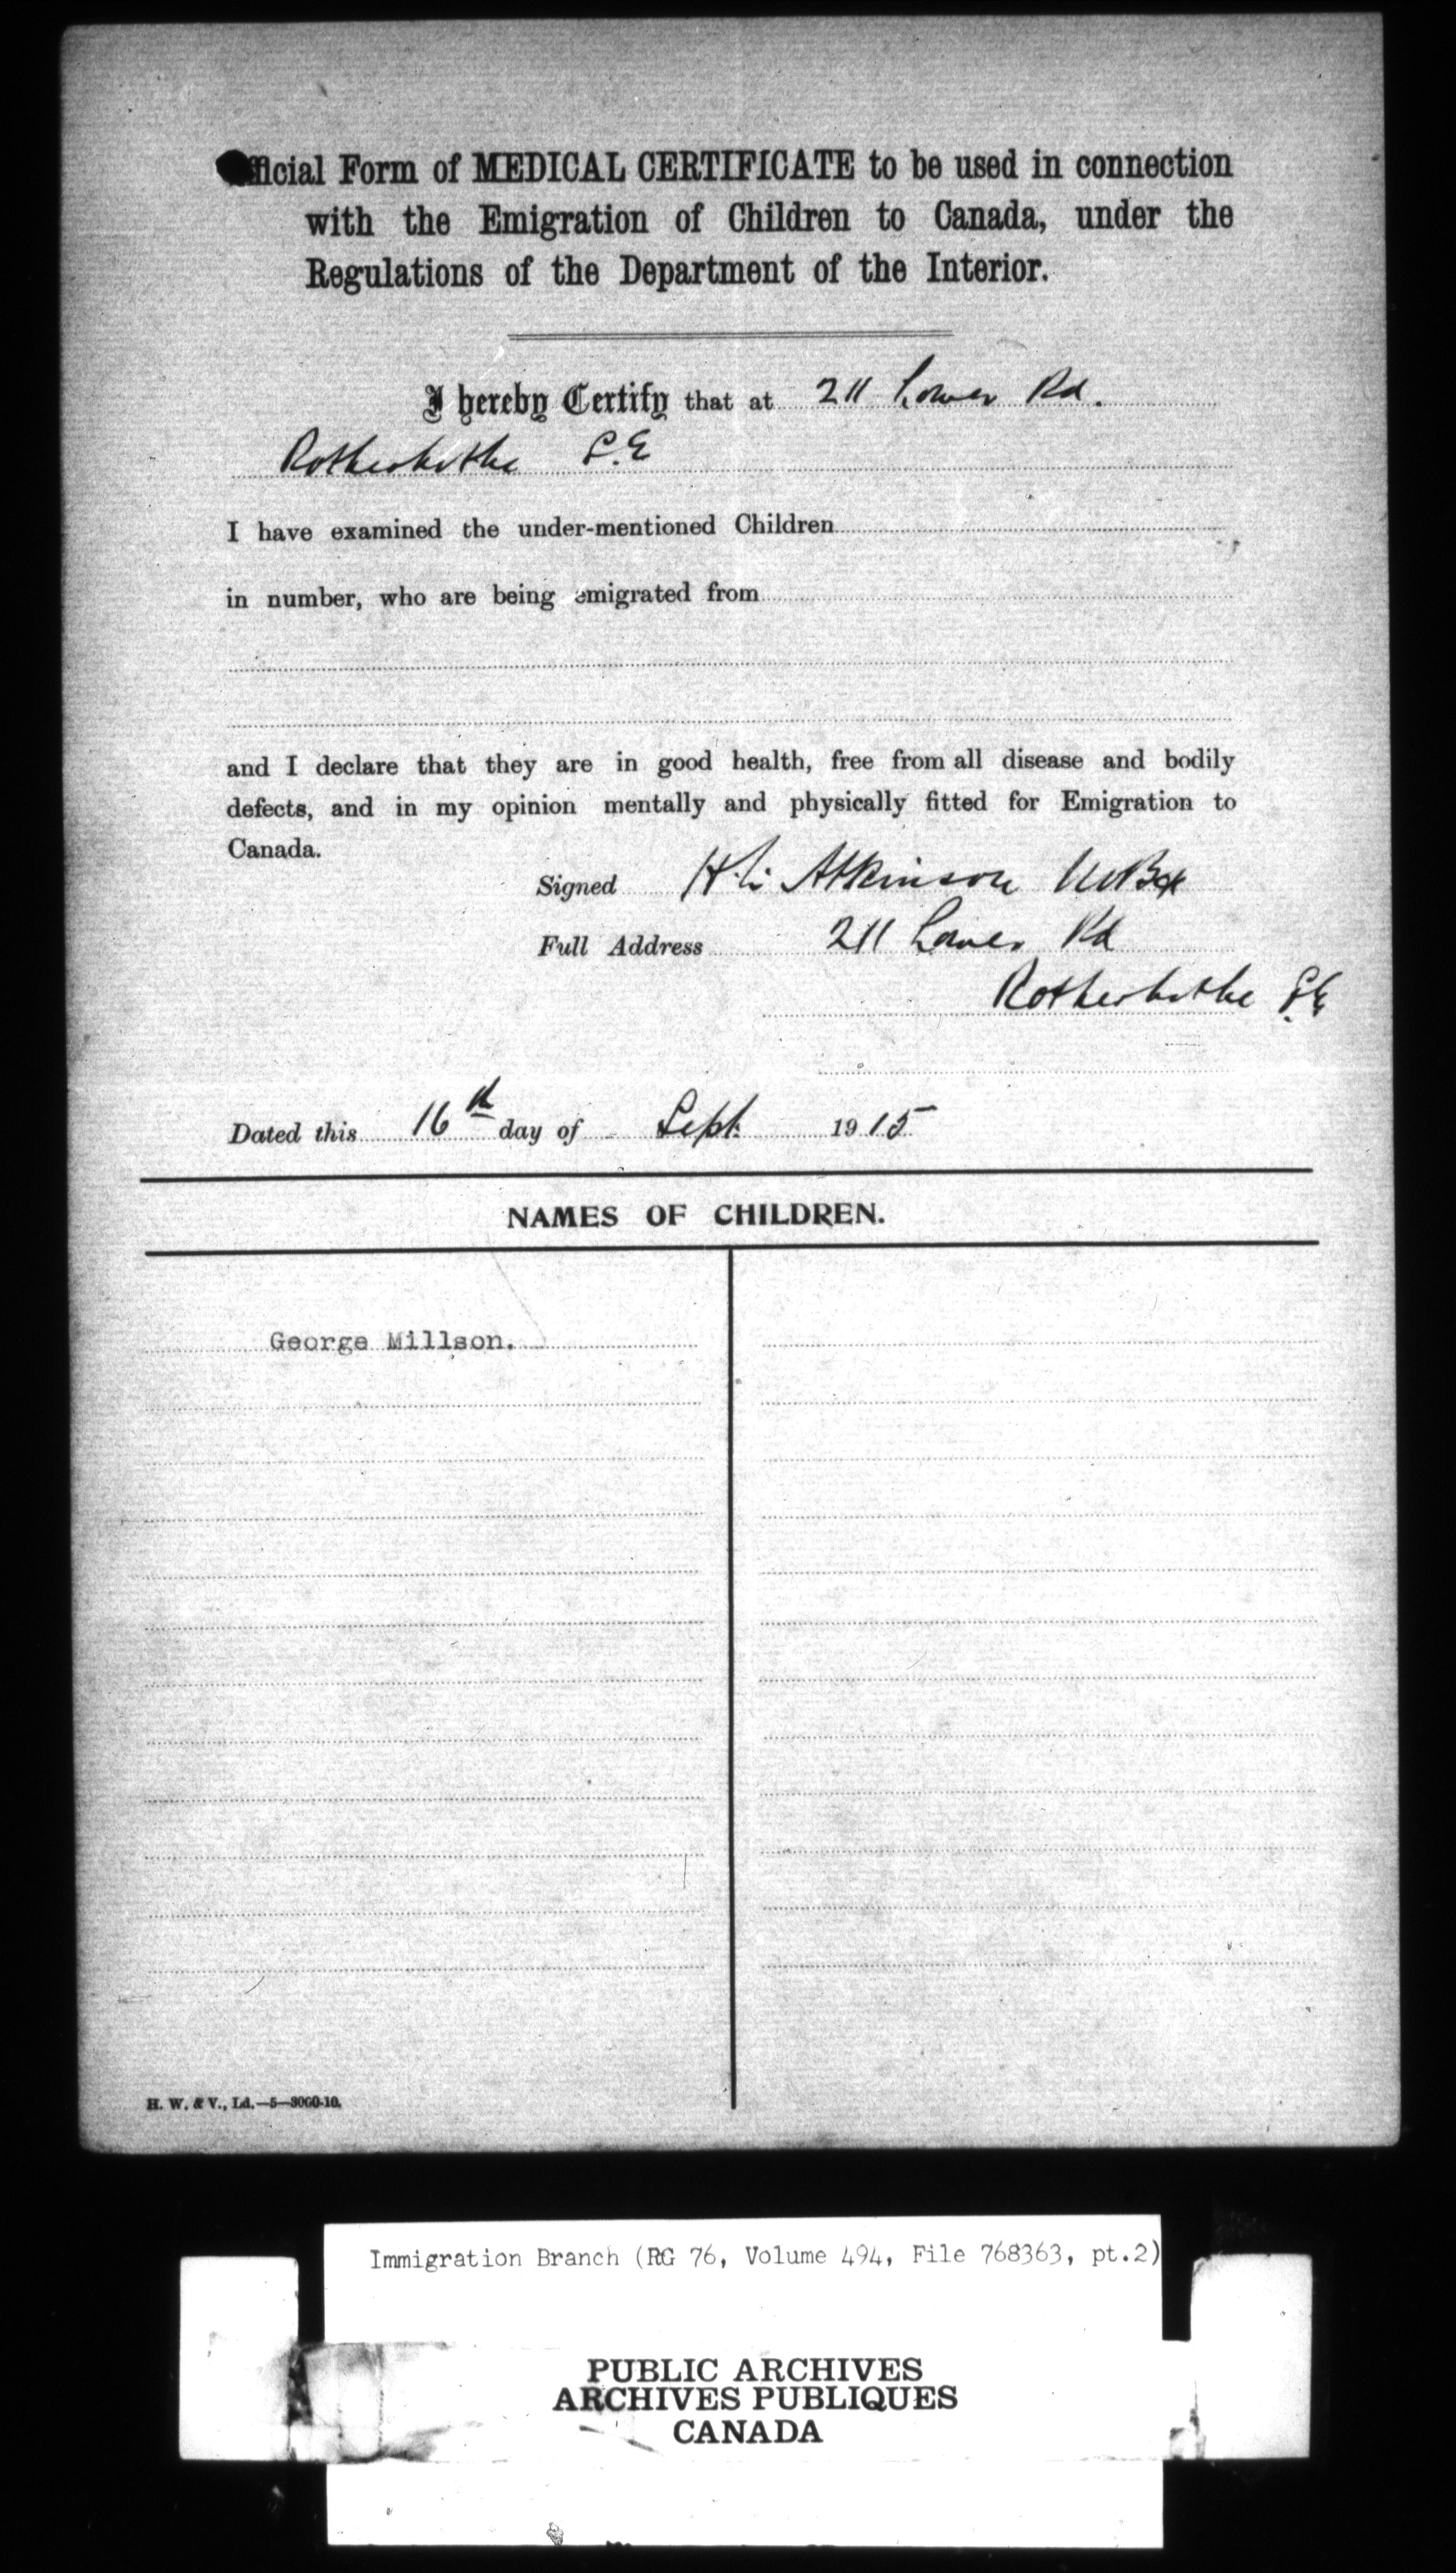 Official Form of MEDICAL CERTIFICATE to be used in connection
with the Emigration of Children to Canada, under the
Regulations of the Department of the Interior.
I hereby Certify that at 211 Lower Rd.
Rotherhithe S.E
I have examined the under-mentioned Children
in number, who are being emigrated from
and I declare that they are in good health, free from all disease and bodily
defects, and in my opinion mentally and physically fitted for Emigration to
Canada.
Signed Atkinson
Full Address 211 Lower Rd
Rotherhithe S.E
Dated this 16th day of Sept. 1915
NAMES OF CHILDREN.
George Millson.
H. W. & V., Ld.—5—3000-10.
Immigration Branch (RG 76, Volume 494, File 768363, pt.2)
PUBLIC ARCHIVES
ARCHIVES PUBLIQUES
CANADA